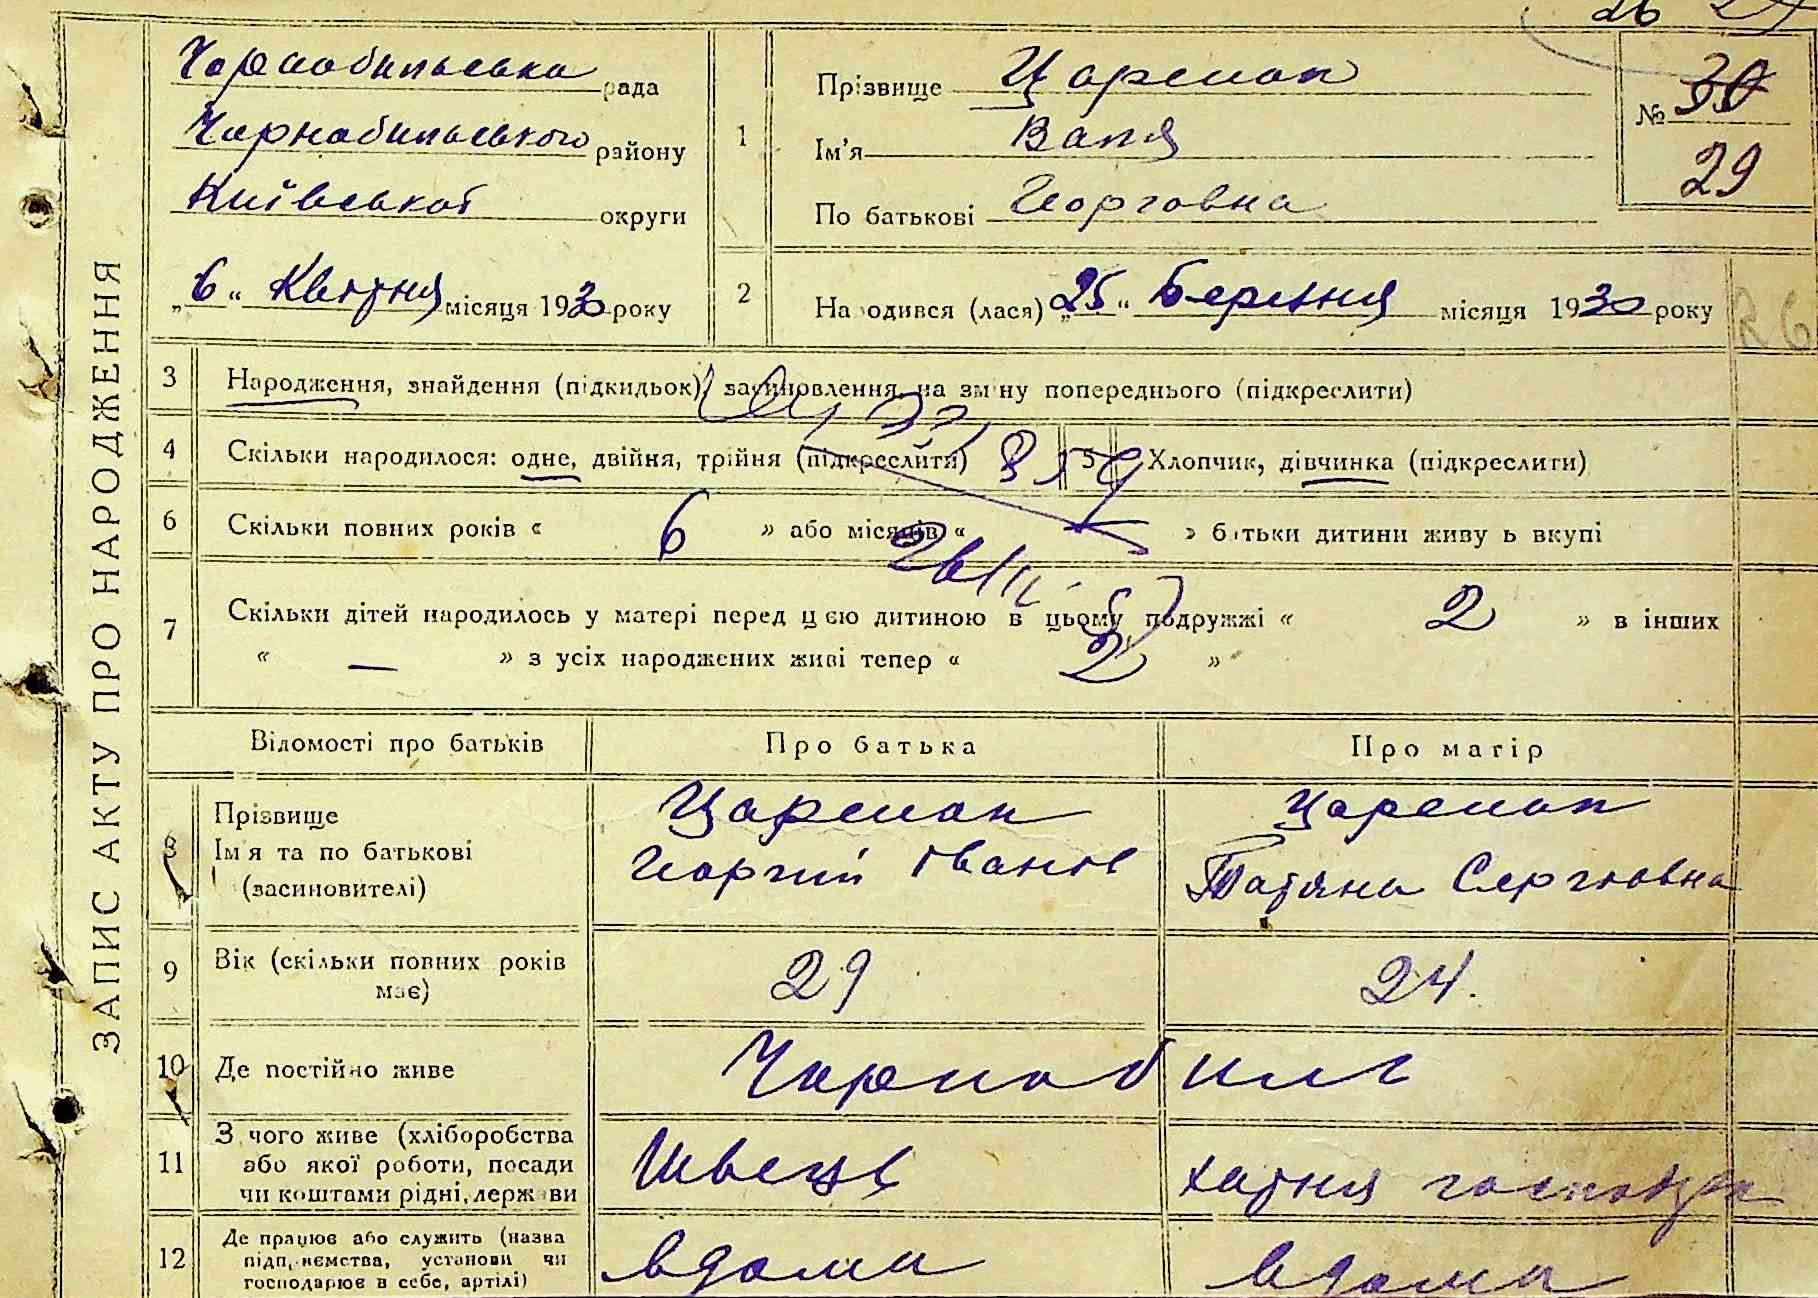 30
Чорнобильська рада
Чорнобильського району
Київської округи
„6“ Квітня місяця 1930 року
1
Прізвище
Ім'я Ваня
По батькові Георговна
№ 30
29
2
Народився (лася) „25“ Березня місяця 1930 року
ЗАПИС АКТУ ПРО НАРОДЖЕННЯ
3 Народження, знайдення (підкидьок), засиновлення, на зміну попереднього (підкреслити)
4 Скільки народилося: одне, двійня, трійня (підкреслити) 5 Хлопчик, дівчинка (підкреслити)
6 Скільки повних років « 6 » або місяців « » батьки дитини живуть вкупі
7 Скільки дітей народилось у матері перед цією дитиною в цьому подружжі « 2 » в інших
« — » з усіх народжених живі тепер « 2 »
Відомості про батьків Про батька Про матір
8 Прізвище
Ім'я та по батькові Георгій Іванов Татяна Сергіовна
(засиновителі)
9 Вік (скільки повних років має) 29 24.
10 Де постійно живе Чорнобиль
11 З чого живе (хліборобства
або якої роботи, посади Швець хатня господарка
чи коштами рідні, держави
12 Де працює або служить (назва
підприємства, установи чи вдома вдома
господарює в себе, артілі)